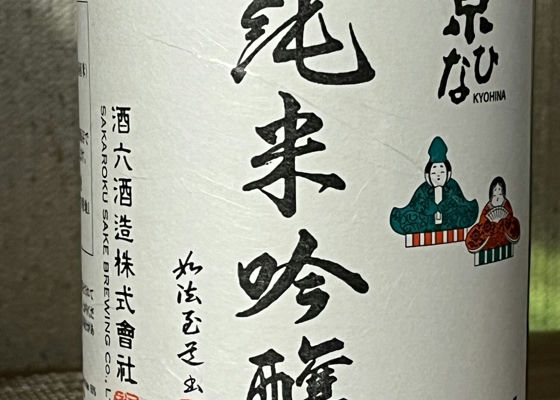 京ひな
KYOHINA
純米吟醸
酒六酒造株式會社
SAKAROKU SAKE BREWING CO., L